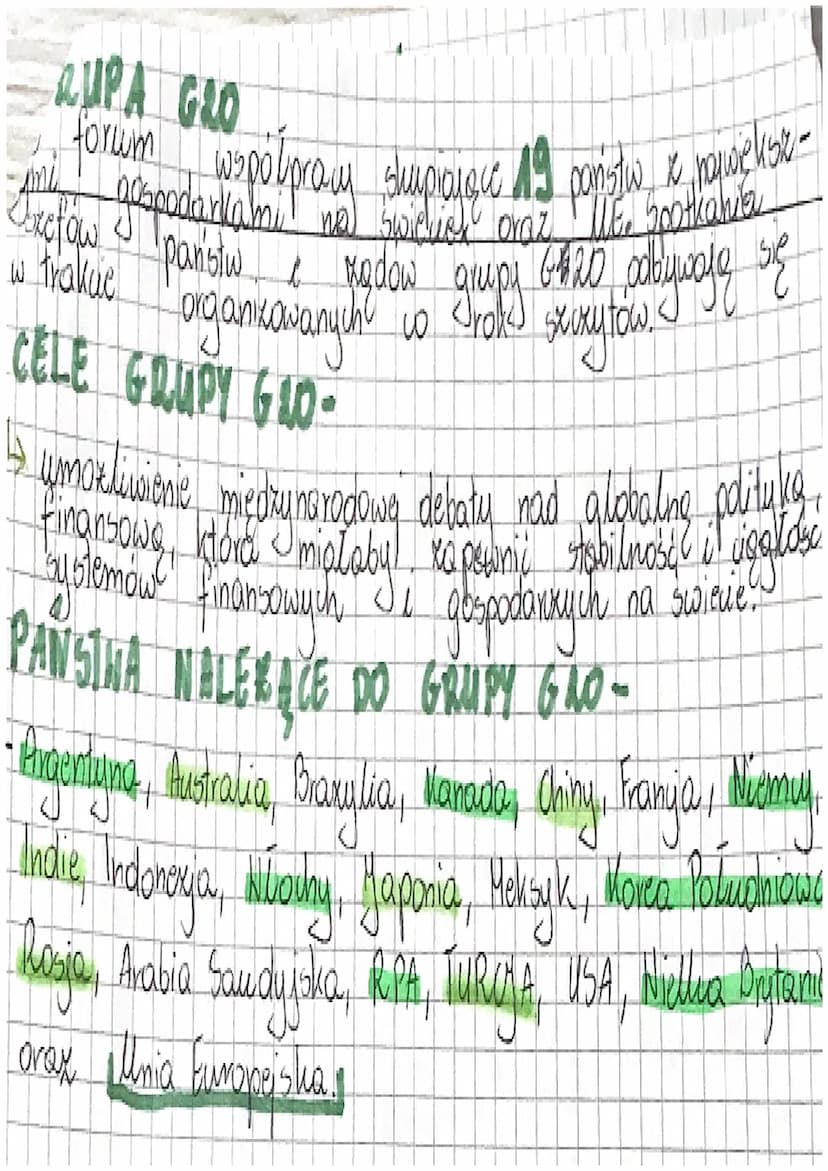 RUPA G20
forum współpracy skupiające 19 państw z najwięksy-
mi gospodarkami na świecie oraz UE. Spotkania
szefów państw i rządów grupy G20 odbywają się
w trakcie organizowanych co rok szczytów.
CELE GRUPY G20-
↳ umożliwienie międzynarodowej debaty nad globalną polityką
finansową, która miałaby zapewnić stabilność i ciągłość
systemów finansowych i gospodarczych na świecie.
PAŃSTWA NALEŻĄCE DO GRUPY G20-
- Argentyna, Australia, Brazylia, Kanada, Chiny, Francja, Niemcy,
Indie, Indonezja, Włochy, Japonia, Meksyk, Korea Południowa
Rosja, Arabia Saudyjska, RPA, TURCJA, USA, Wielka Brytania
oraz Unia Europejska.